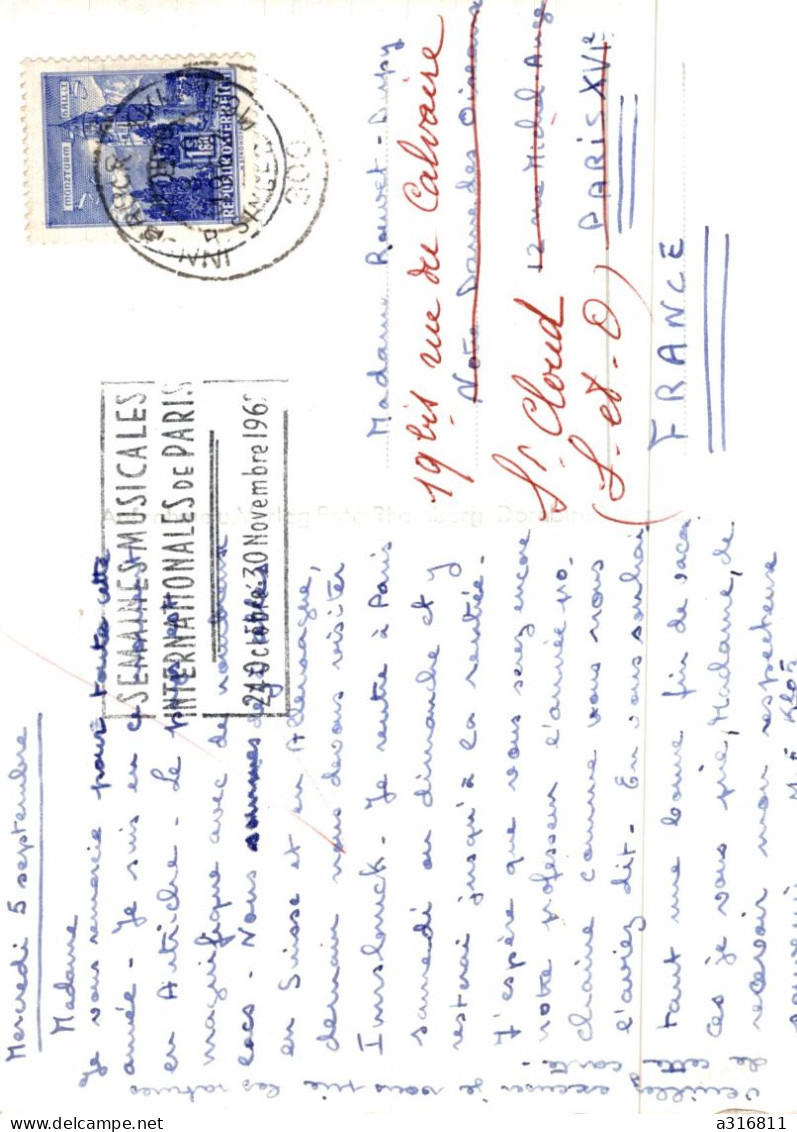 Mercredi 5 septembre
Madame
Je vous remercie pour toute cette
année - Je suis en
en Autriche - Le pays est
magnifique avec de nombreux
lacs - Nous sommes
en Suisse et en Allemagne,
demain nous devons visiter
Innsbruck - Je rentre à Paris
samedi ou dimanche et y
resterai jusqu'à la rentrée.
J'espère que vous serez encore
notre professeur l'année pro-
chaine comme vous nous
l'aviez dit - En vous souhai
tant une bonne fin de vacan
ces je vous prie, Madame, de
recevoir mon respectueux
souvenir
veuillez excuser je vous prie les ratures
de cette carte.
SEMAINES MUSICALES
INTERNATIONALES DE PARIS
24 Octobre-30 Novembre 196
MÜNZTURM
HALL I.T.
REPUBLIK ÖSTERREICH
S 1.80
Madame Rouvet-Dupy
19 bis rue du Calvaire
Notre Dame des Oiseaux
12 rue Michel Ange
St. Cloud
PARIS XVIe
(S. et. O)
FRANCE
a316811